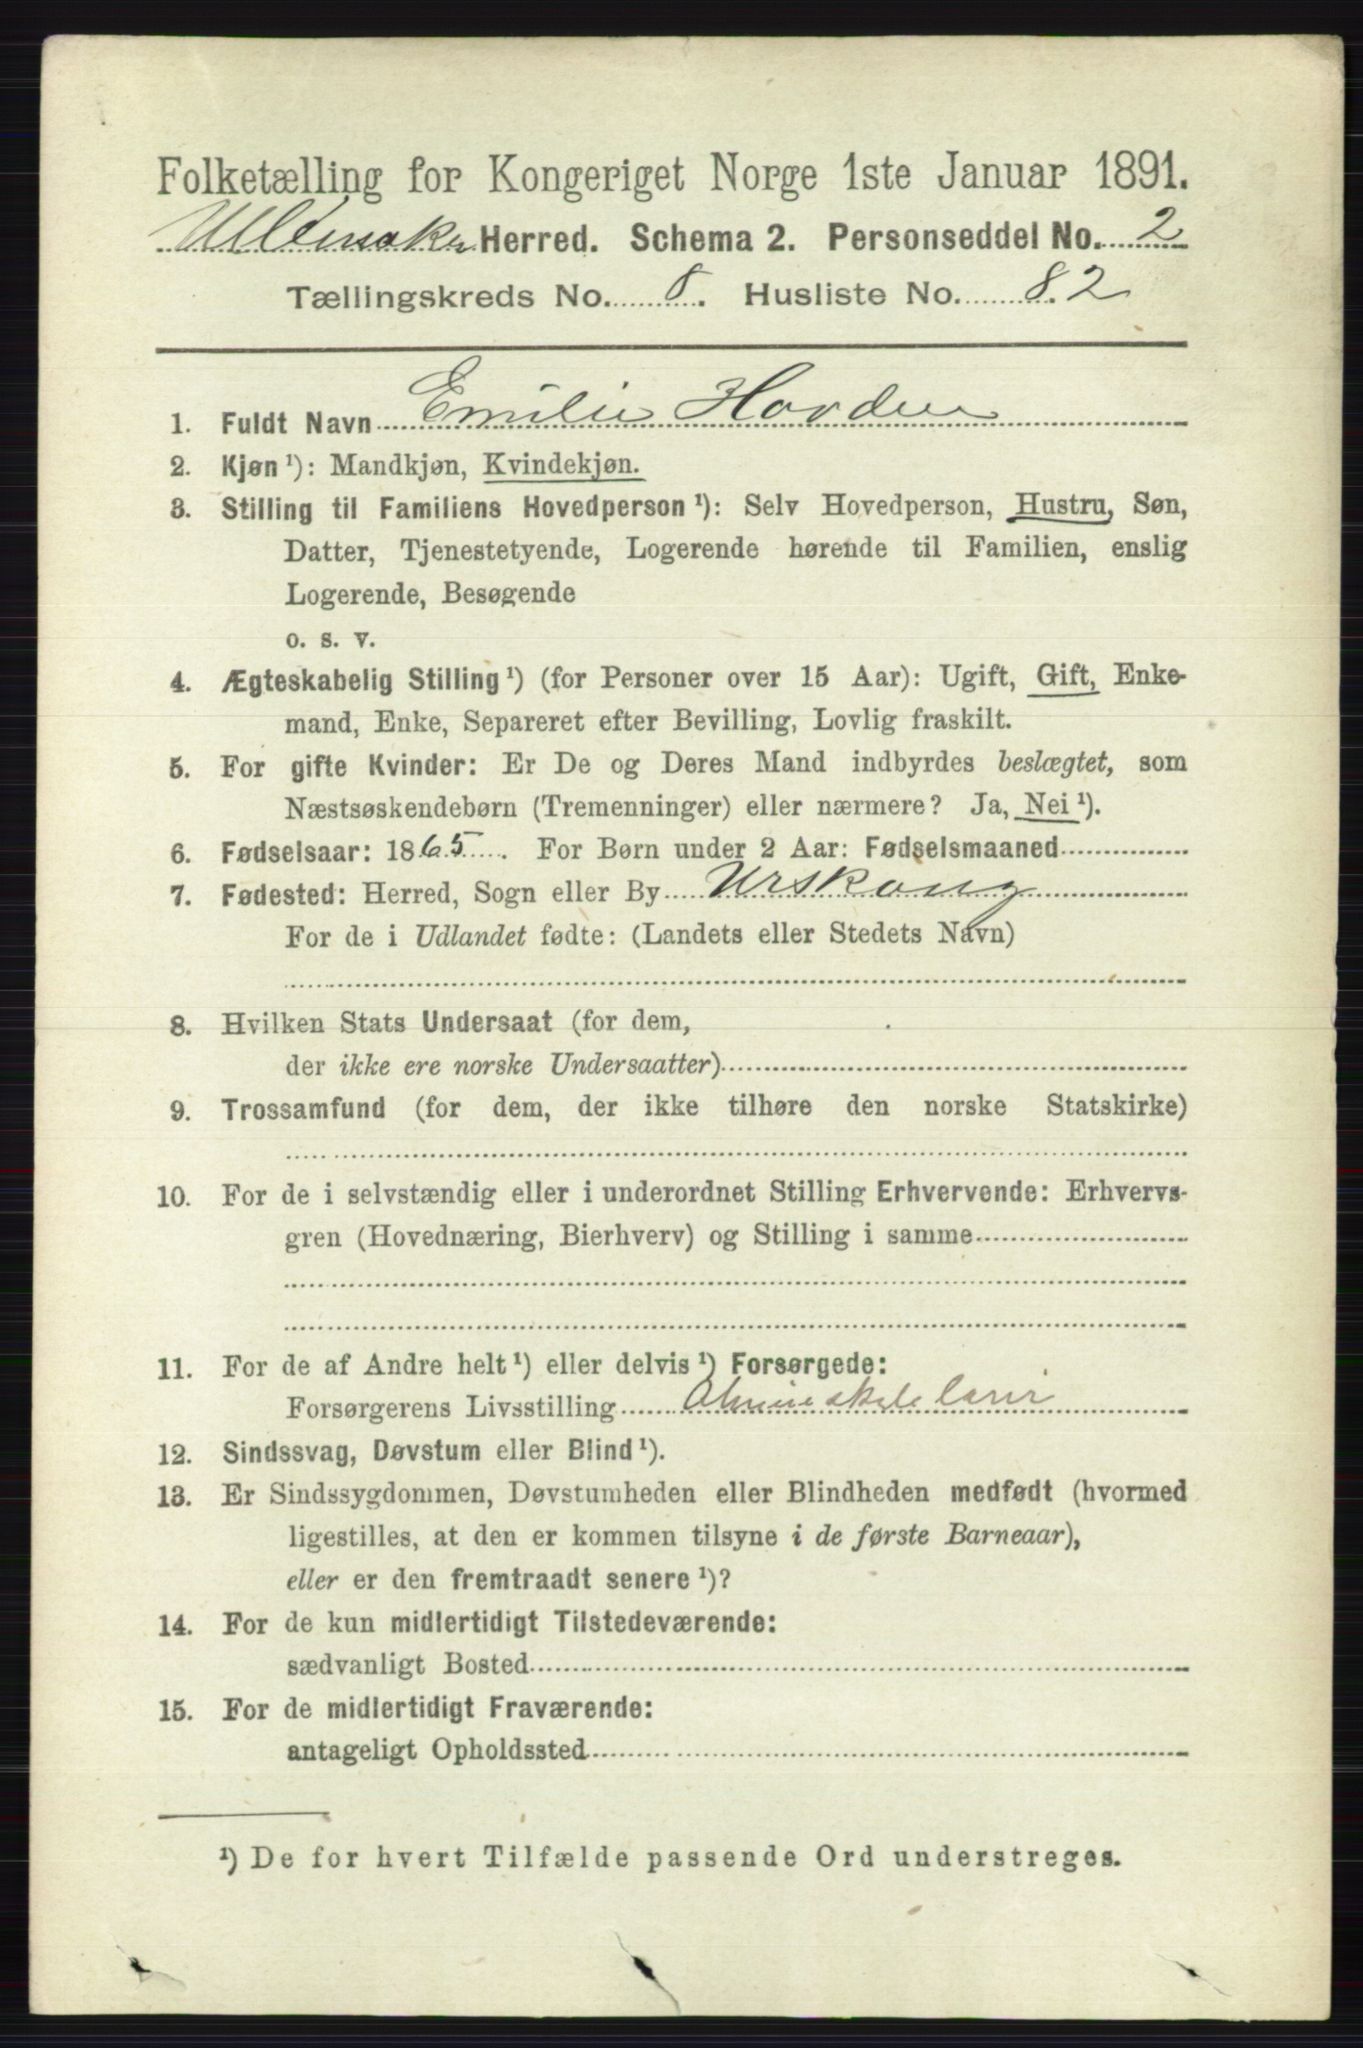 Folketælling for Kongeriget Norge 1ste Januar 1891.
Ullensaker Herred. Schema 2. Personseddel No. 2
Tællingskreds No. 8. Husliste No. 82
1. Fuldt Navn Emilie
2. Kjøn ¹): Mandkjøn, Kvindekjøn.
3. Stilling til Familiens Hovedperson ¹): Selv Hovedperson, Hustru, Søn,
Datter, Tjenestetyende, Logerende hørende til Familien, enslig
Logerende, Besøgende
o. s. v.
4. Ægteskabelig Stilling ¹) (for Personer over 15 Aar): Ugift, Gift, Enke-
mand, Enke, Separeret efter Bevilling, Lovlig fraskilt.
5. For gifte Kvinder: Er De og Deres Mand indbyrdes beslægtet, som
Næstsøskendebørn (Tremenninger) eller nærmere? Ja, Nei ¹).
6. Fødselsaar: 1865. For Børn under 2 Aar: Fødselsmaaned
7. Fødested: Herred, Sogn eller By Urskoug
For de i Udlandet fødte: (Landets eller Stedets Navn)
8. Hvilken Stats Undersaat (for dem,
der ikke ere norske Undersaatter)
9. Trossamfund (for dem, der ikke tilhøre den norske Statskirke)
10. For de i selvstændig eller i underordnet Stilling Erhvervende: Erhvervs-
gren (Hovednæring, Bierhverv) og Stilling i samme
11. For de af Andre helt ¹) eller delvis ¹) Forsørgede:
Forsørgerens Livsstilling
12. Sindssvag, Døvstum eller Blind ¹).
13. Er Sindssygdommen, Døvstumheden eller Blindheden medfødt (hvormed
ligestilles, at den er kommen tilsyne i de første Barneaar),
eller er den fremtraadt senere ¹)?
14. For de kun midlertidigt Tilstedeværende:
sædvanligt Bosted
15. For de midlertidigt Fraværende:
antageligt Opholdssted
¹) De for hvert Tilfælde passende Ord understreges.